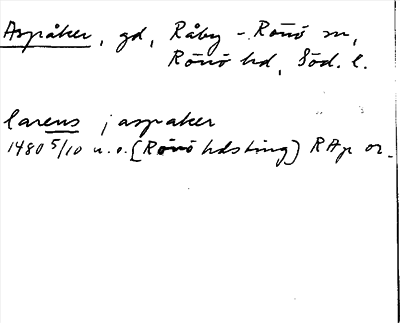 Aspåker, gd, Råby-Rönö sn,
Rönö hd, Söd. l.
larens j aspaker
1480 5/10 u.o. (Rönö hdsting) RAp or.